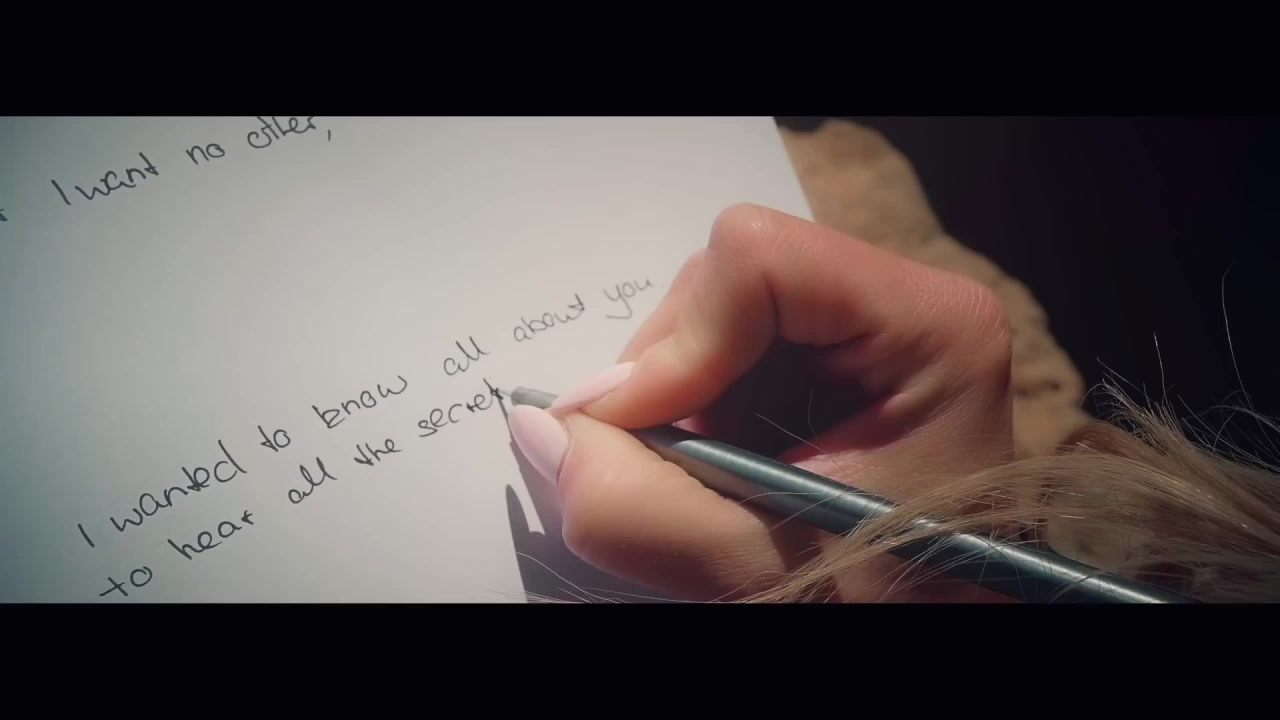 I want no other,
I wanted to know all about you.
to hear all the secret